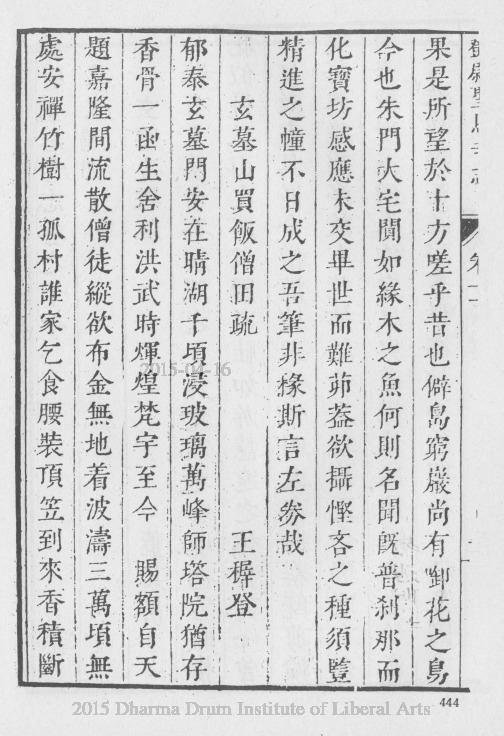 果是所望於十方嗟乎昔也僻島窮巖尚有啣花之鳥
今也朱門大宅闃如緣木之魚何則名聞旣普刹那而
化寶坊感應未交畢世而難茆葢欲攝慳吝之種須豎
精進之幢不日成之吾筆非緣斯言左券哉
玄墓山買飯僧田疏 王穉登
郁泰玄墓門安在晴湖千頃浸玻璃萬峰師塔院猶存
香骨一函生舍利洪武時煇煌梵宇至今 賜額自天
題嘉隆間流散僧徒縱欲布金無地着波濤三萬頃無
處安禪竹樹一孤村誰家乞食腰裝頂笠到來香積斷
2015-04-16
444
2015 Dharma Drum Institute of Liberal Arts